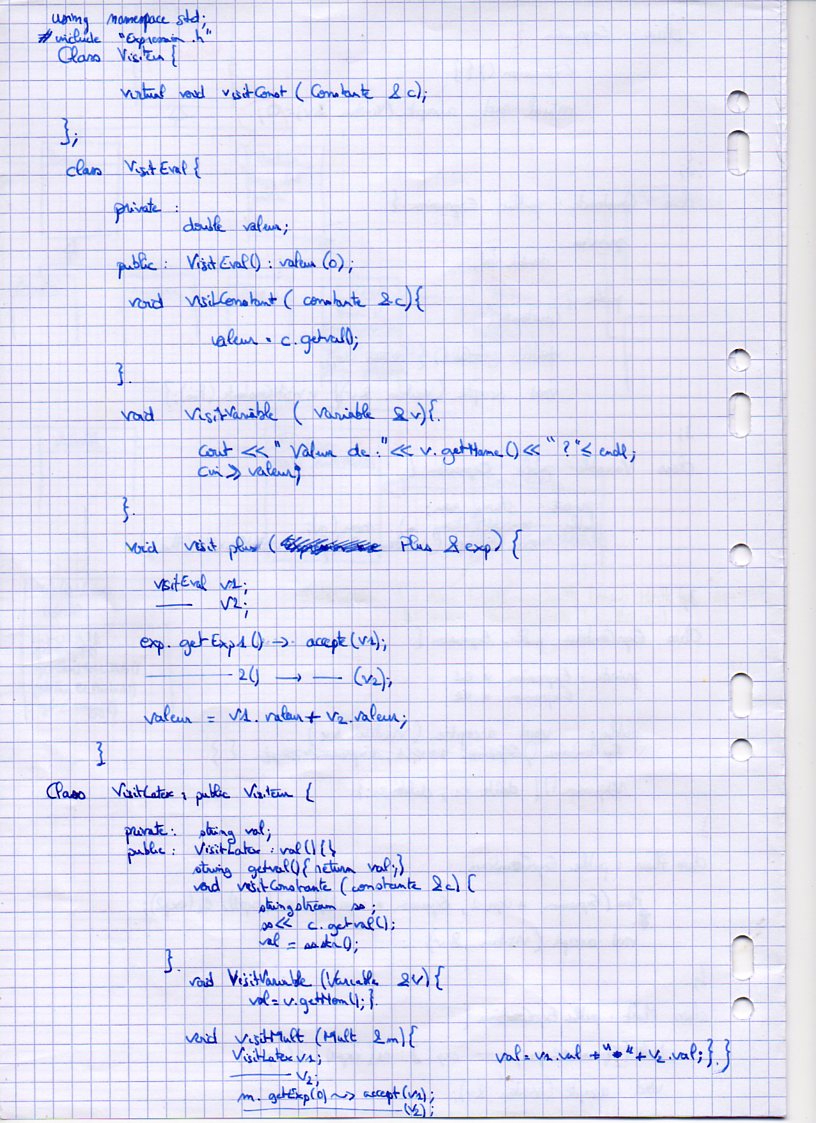 using namespace std;
# include "Expression.h"
Class Visiteur {
virtual void visitConst ( Constante & c);
};
class VisitEval {
private :
double valeur;
public : VisitEval() : valeur (0);
void visitConstant ( constante & c) {
valeur = c.getval();
}.
void VisitVariable ( Variable & v) {.
Cout << " Valeur de : " << v.getName() << " ? " ≤ endl;
cin >> valeur;
}.
void visit plus ( Plus & exp) {
visitEval v1;
—— v2;
exp. getExp1() -> accept (v1);
———— 2() —> —— (v2);
valeur = v1. valeur + v2.valeur;
}
Class VisitLatex : public Visiteur {
private : string val;
public : VisitLatex : val() {}
string getval() { return val; }
void visitConstante ( constante & c) {
stringstream ss;
ss << c. getval();
val = ss.str();
}.
void VisitVariable (Variable & v) {
val = v.getNom(); }.
void visitMult (Mult & m) {
VisitLatex v1;
———— v2;
m. getExp(0) ~> accept (v1);
———————— (v2);
val = v1.val + "*" + v2.val; }.}